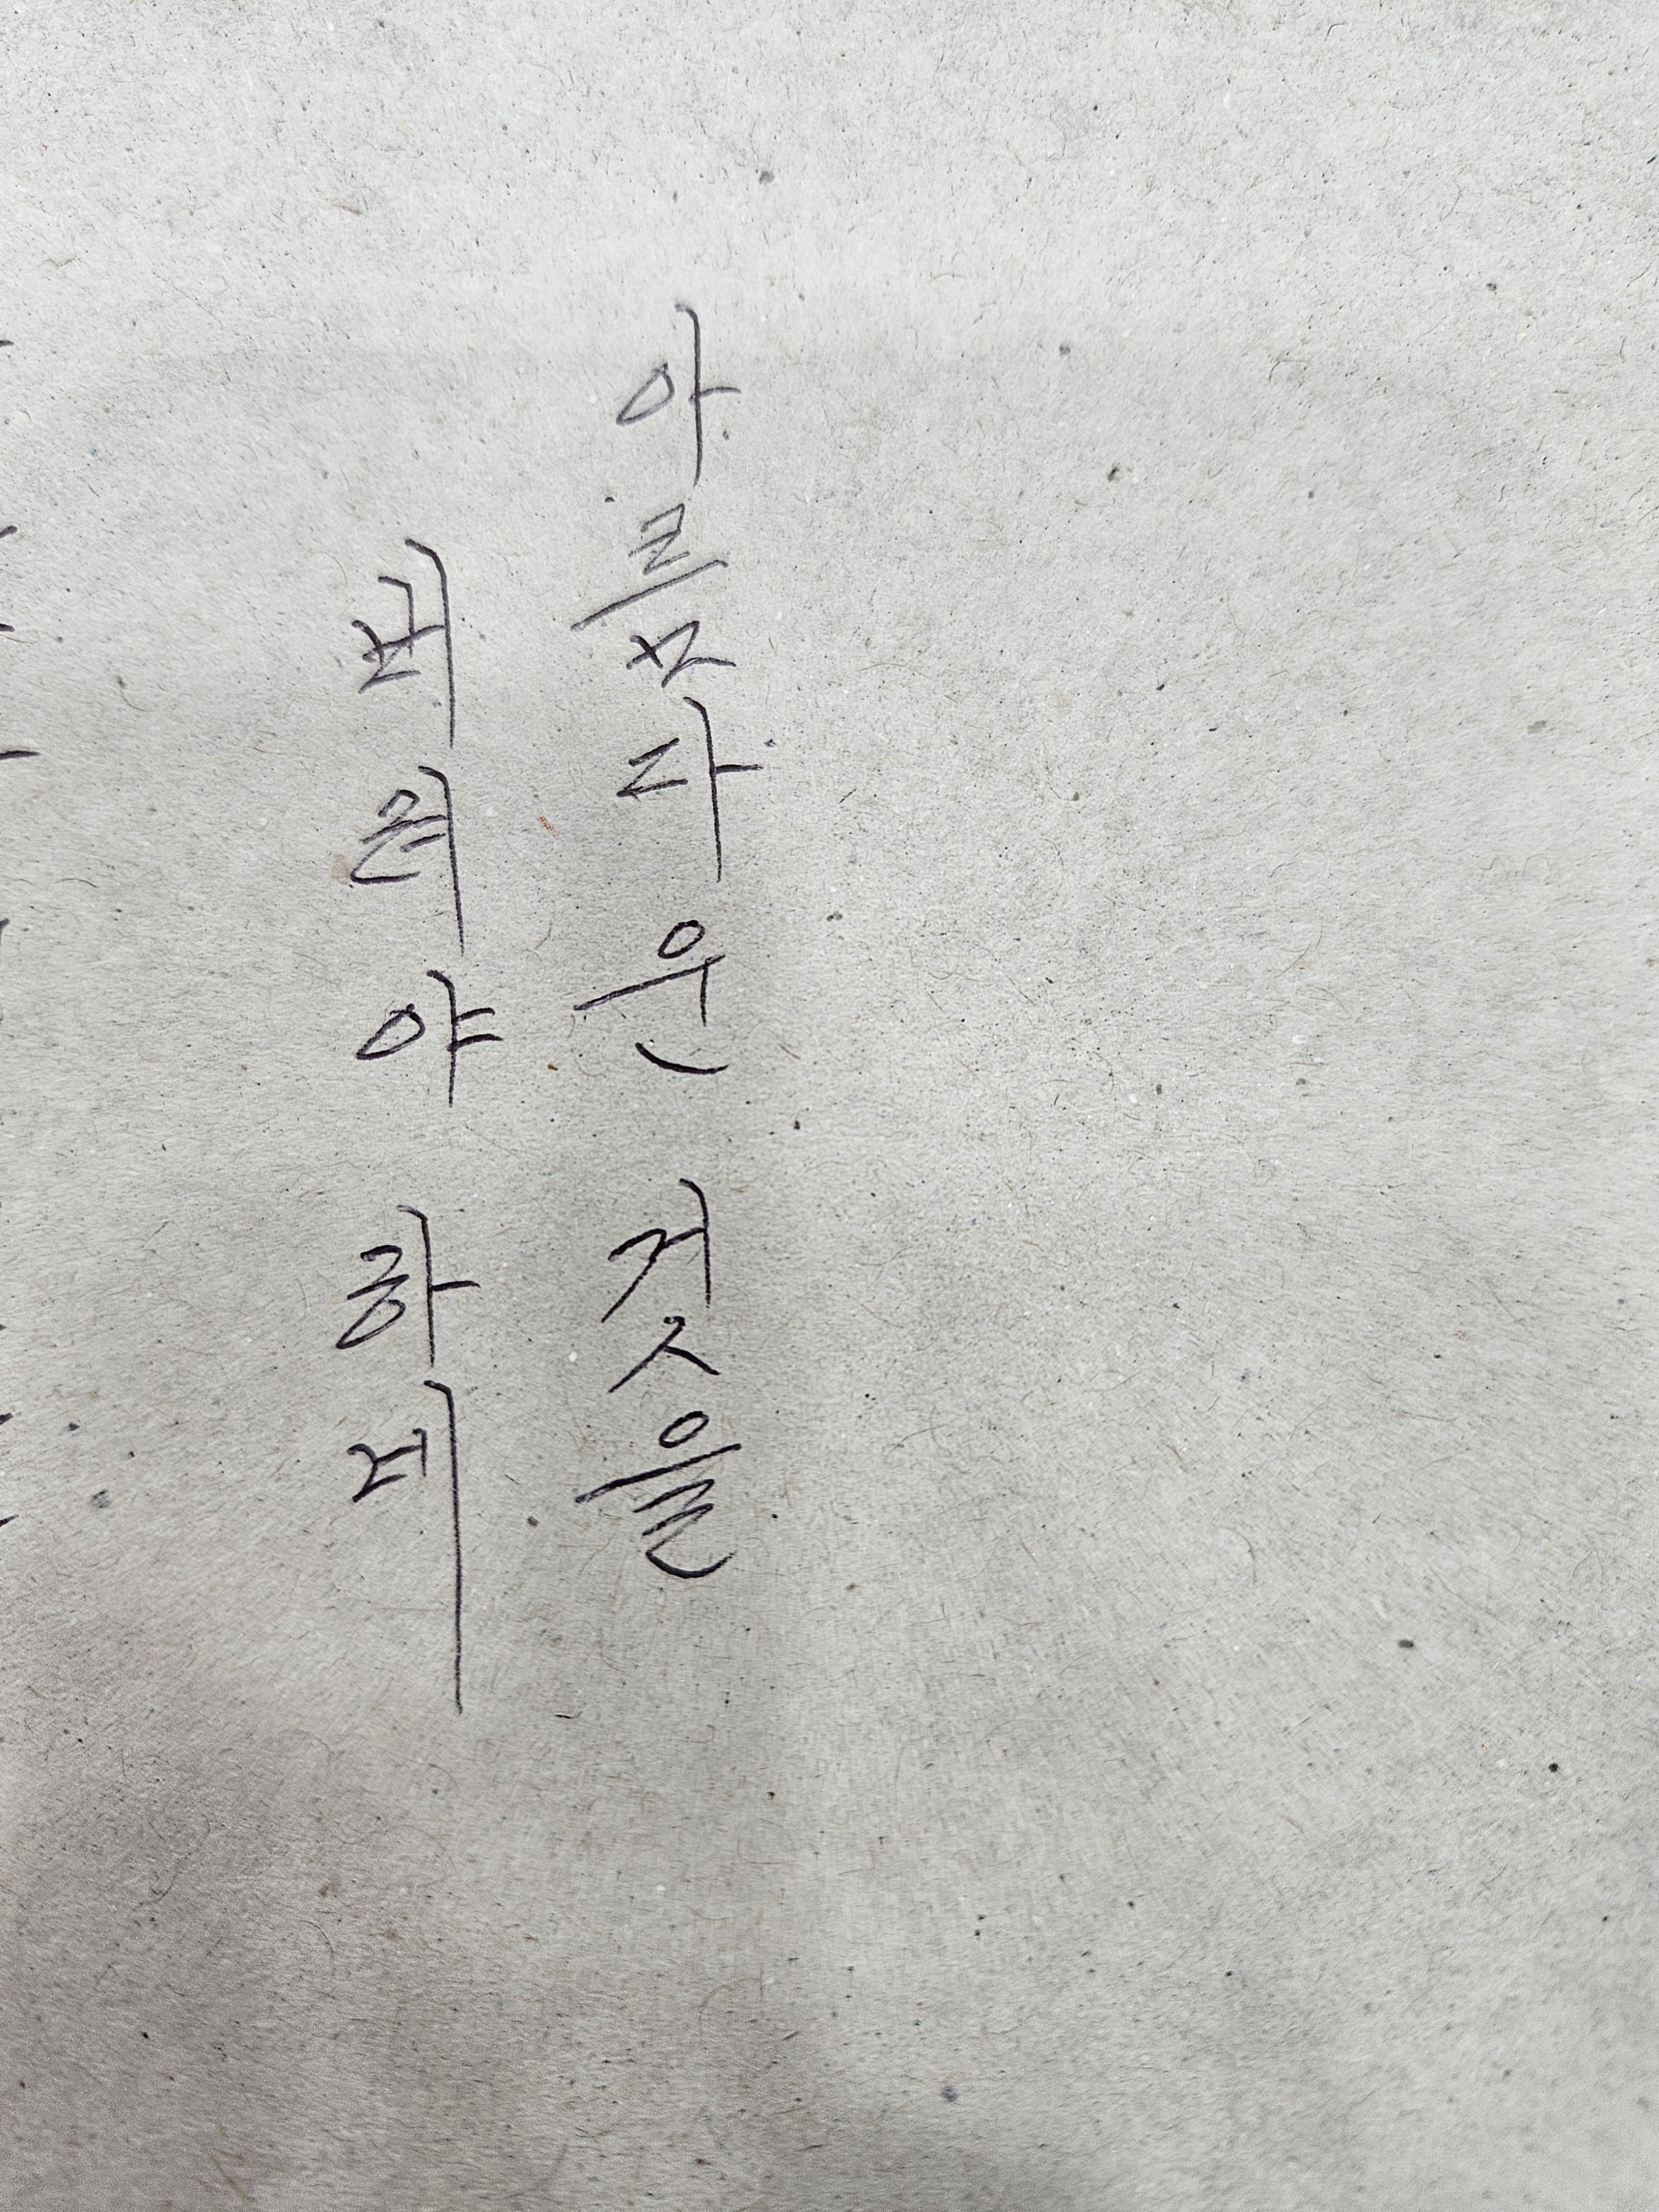 아름다운 것을
버려야 하네